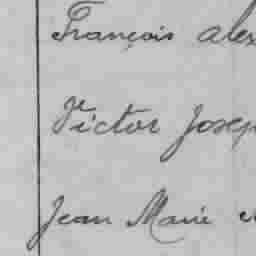 François alex
Victor Josep
Jean Marie